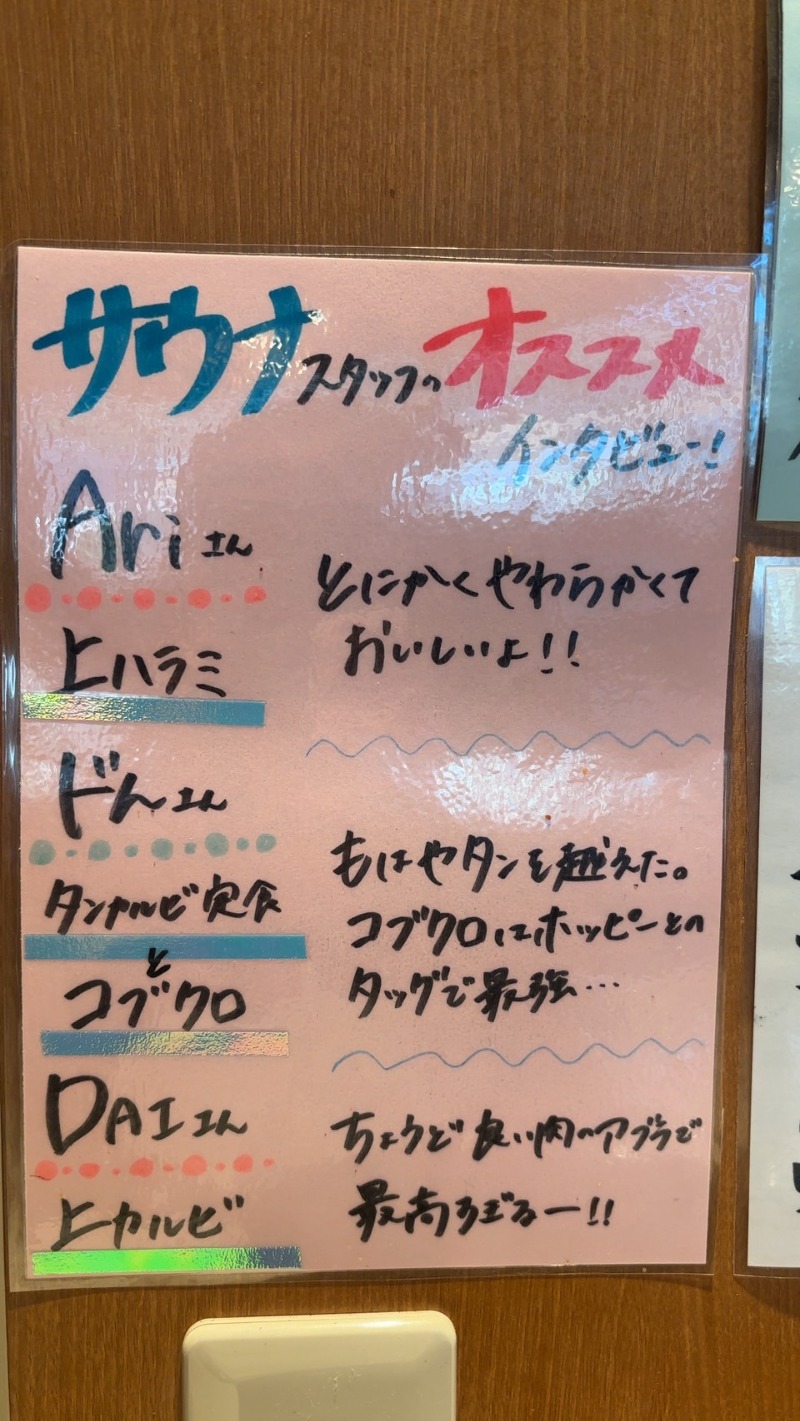 サウナスタッフのオススメ
インタビュー!
Ariさん
上ハラミ
とにかくやわらかくて
おいしいよ!!
どんさん
タンカルビ定食
と
コブクロ
もはやタンを越えた。
コブクロはホッピーとの
タッグで最強…
DAIさん
上カルビ
ちょうど良い肉のアブラで
最高すぎるー!!